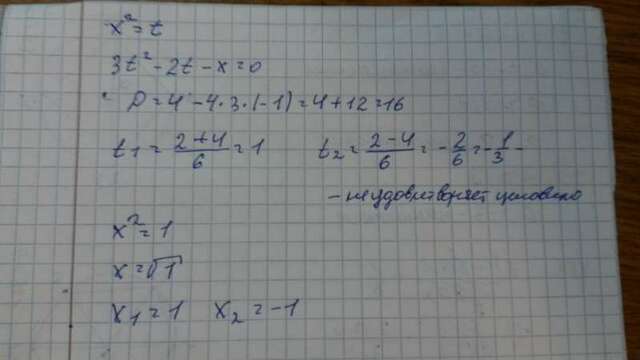 x² = t
3t² - 2t - x = 0
D = 4 - 4·3·(-1) = 4 + 12 = 16
t₁ = (2+4)/6 = 1 t₂ = (2-4)/6 = -2/6 = -1/3 -
- не удовлетворяет условию
x² = 1
x = √1
x₁ = 1 x₂ = -1